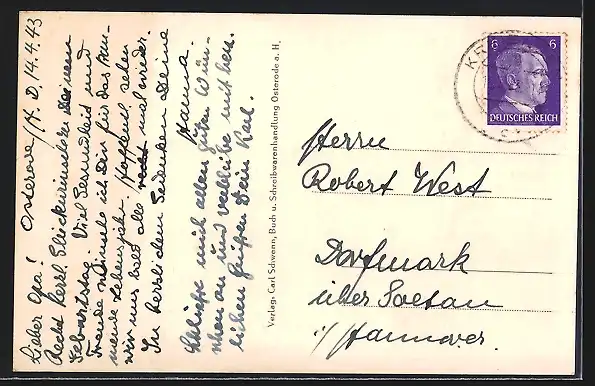 Lieber Opa! Osterode/H. D. 14.4.43
Recht herzl. Glückwünsche Deinem
Geburtstag. Viel Gesundheit und
Freude wünsche ich Dir für das kom-
mende Lebensjahr. Hoffentl. sehen
wir uns bald alle mal wieder.
In herzlichem Gedenken Deine
Hanna.
Schließe mich allen guten Wün-
schen an und verbleibe mit herz-
lichen Grüßen Dein Karl.
Verlag: Carl Schwenn, Buch u. Schreibwarenhandlung Osterode a. H.
6 6
DEUTSCHES REICH
Herrn
Robert West
Dorfmark
über Soltau
i/Hannover.